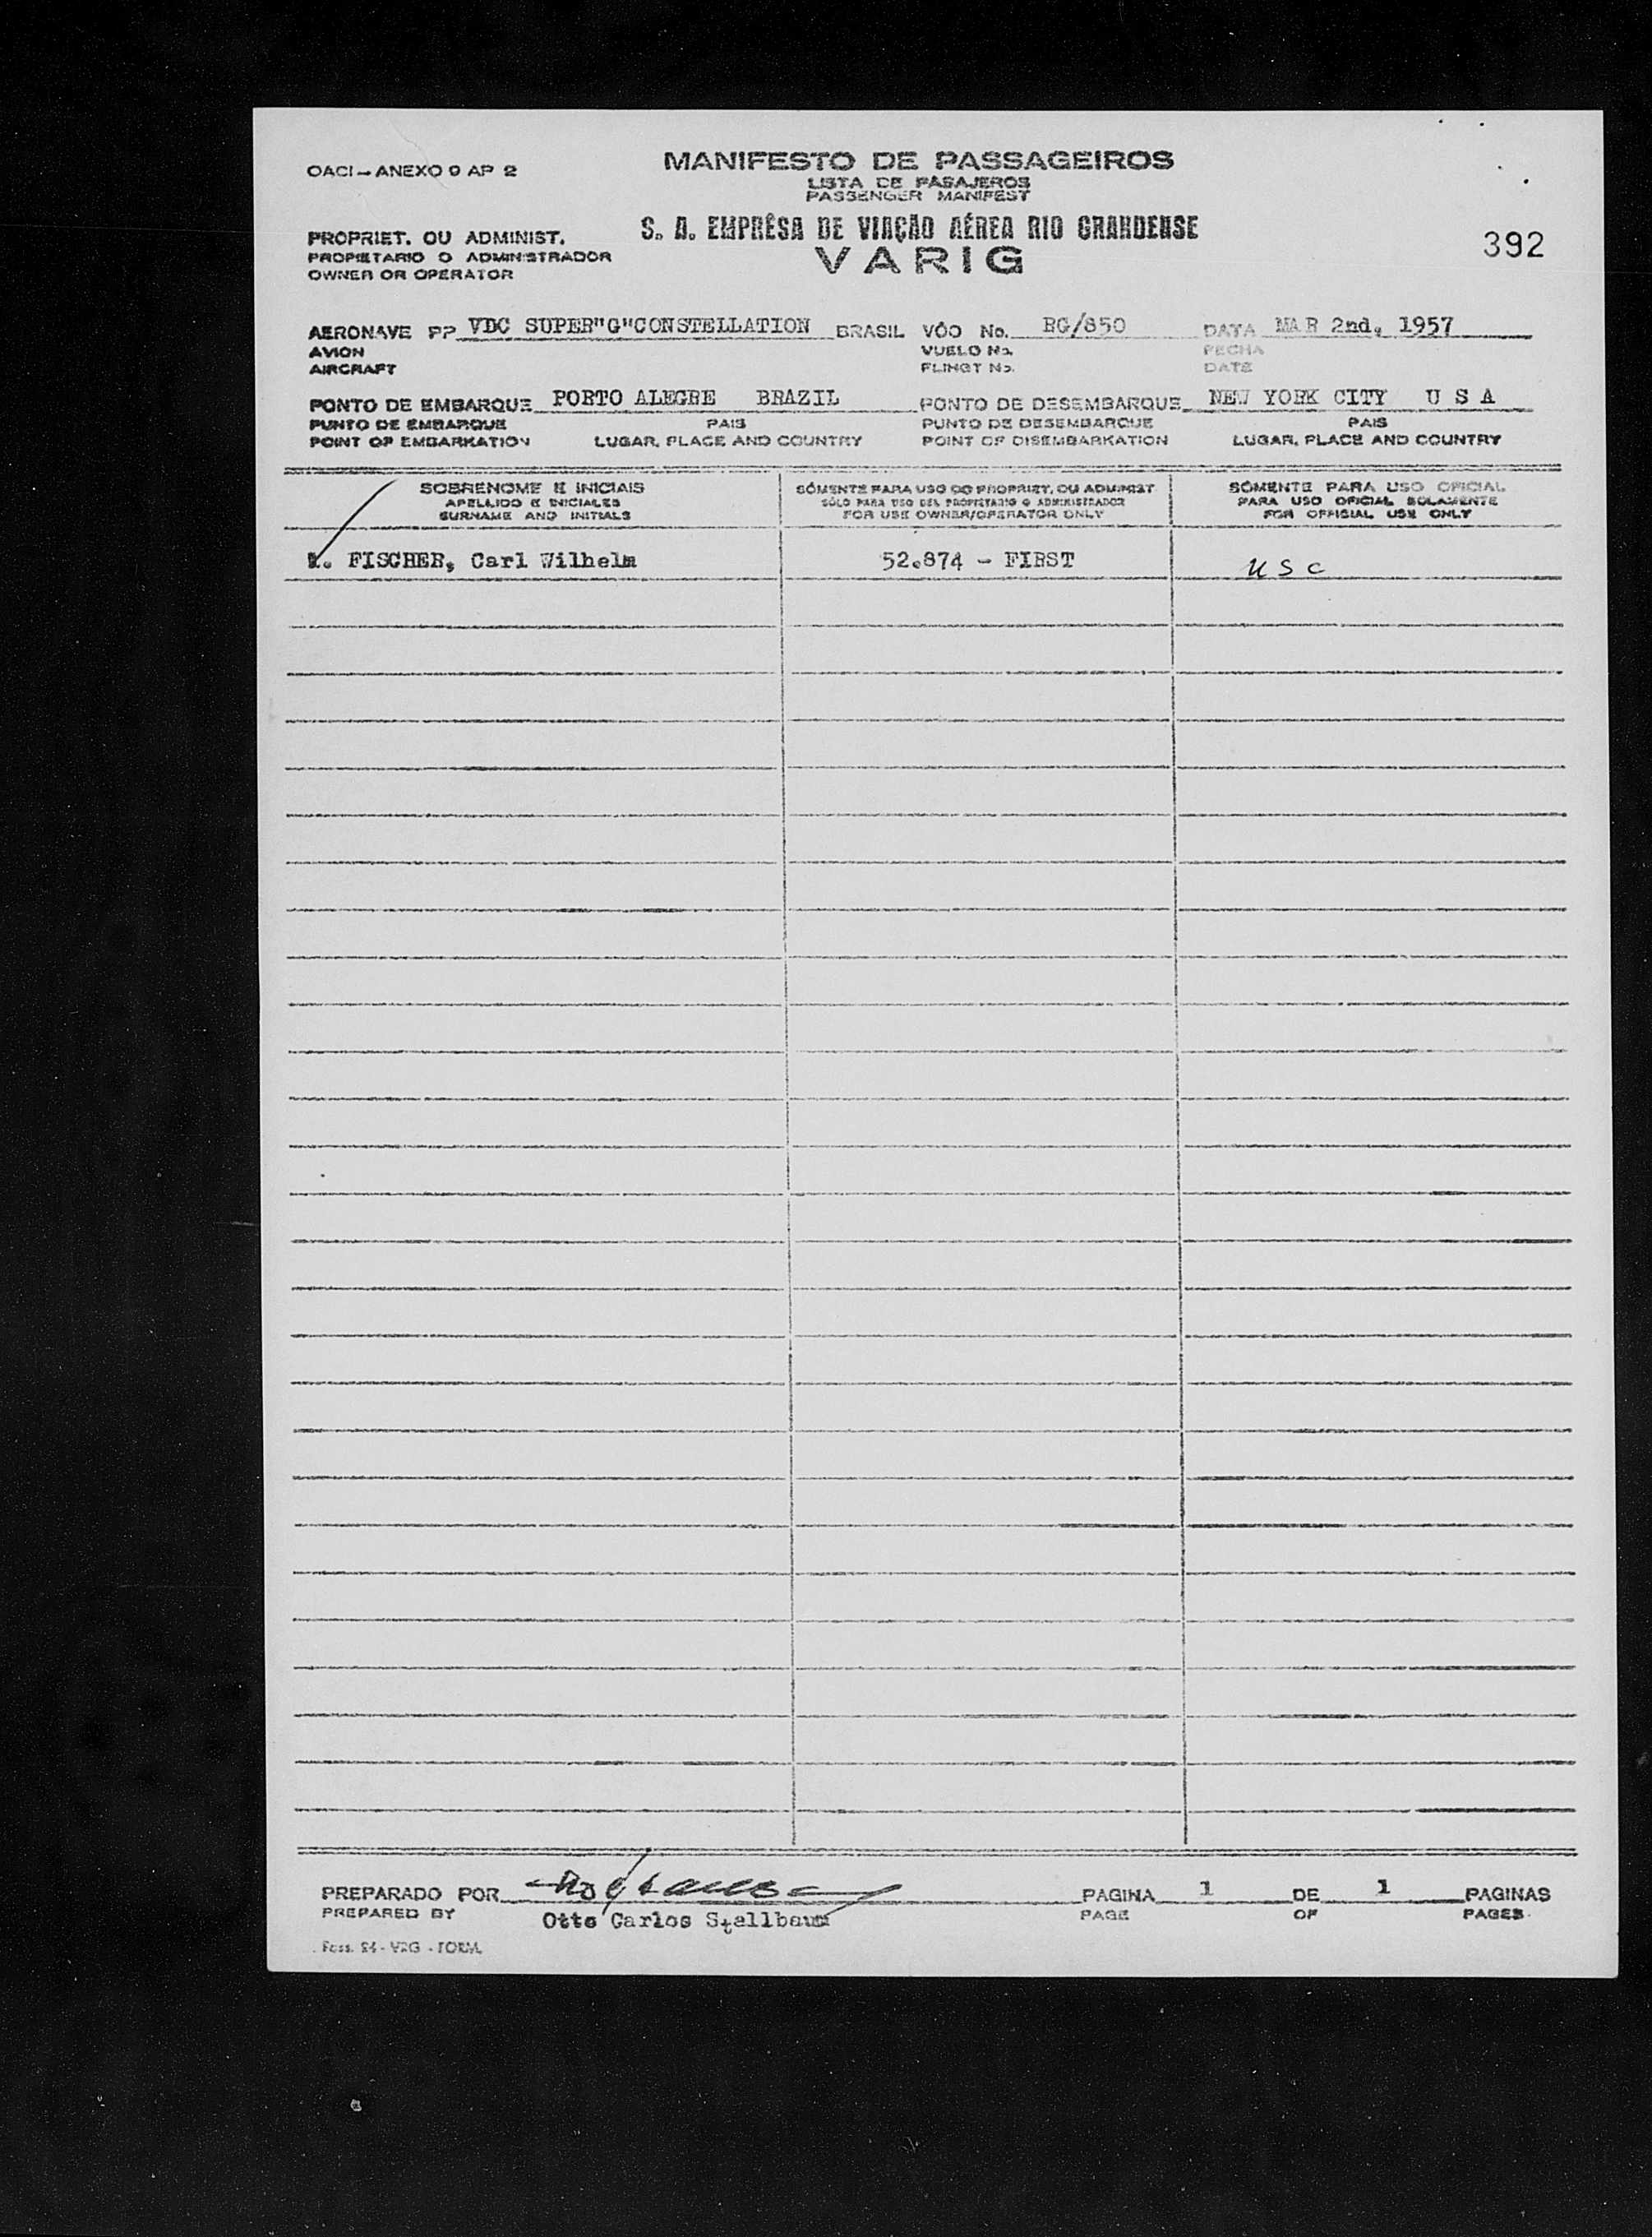 OACI - ANEXO 9 AP 2
MANIFESTO DE PASSAGEIROS
LISTA DE PASAJEROS
PASSENGER MANIFEST
PROPRIET. OU ADMINIST.
PROPIETARIO O ADMINISTRADOR
OWNER OR OPERATOR
S. A. EMPRÊSA DE VIAÇÃO AÉREA RIO GRANDENSE
VARIG
392
AERONAVE PP VDC SUPER"G"CONSTELLATION BRASIL VÔO No. RG/850 DATA MAR 2nd, 1957
AVION VUELO No. FECHA
AIRCRAFT FLINGT No. DATE
PONTO DE EMBARQUE PORTO ALEGRE BRAZIL PONTO DE DESEMBARQUE NEW YORK CITY U S A
PUNTO DE EMBARQUE PAIS PUNTO DE DESEMBARQUE PAIS
POINT OF EMBARKATION LUGAR, PLACE AND COUNTRY POINT OF DISEMBARKATION LUGAR, PLACE AND COUNTRY
SOBRENOME E INICIAIS SÓMENTE PARA USO DO PROPRIET. OU ADMINIST SÓMENTE PARA USO OFICIAL
APELLIDO E INICIALES SÓLO PARA USO DEL PROPIETARIO O ADMINISTRADOR PARA USO OFICIAL SOLAMENTE
SURNAME AND INITIALS FOR USE OWNER/OPERATOR ONLY FOR OFFICIAL USE ONLY
1. FISCHER, Carl Wilhelm 52.874 - FIRST USC
PREPARADO POR PAGINA 1 DE 1 PAGINAS
PREPARED BY Otto Carlos Stellbaum PAGE OF PAGES
- VRG - FORM.